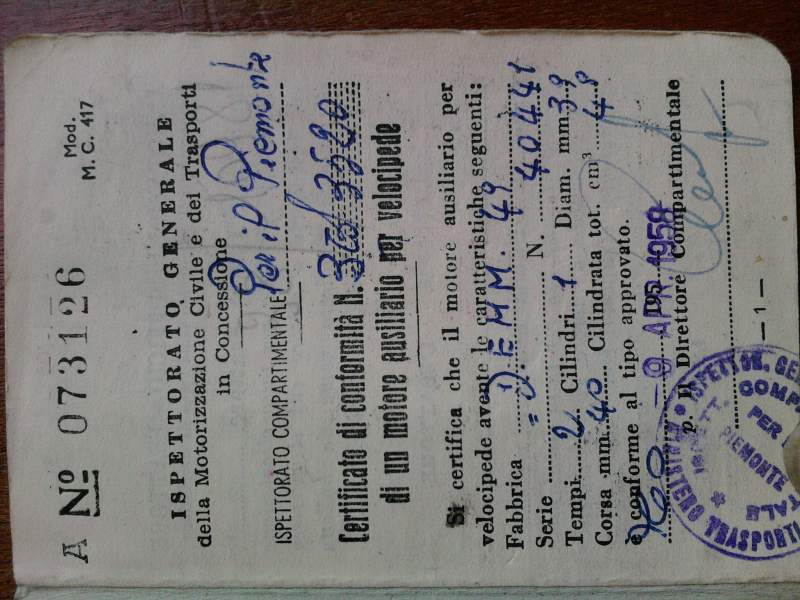 Mod.
M. C. 417
A Nº 073126
ISPETTORATO GENERALE
della Motorizzazione Civile e dei Trasporti
in Concessione
ISPETTORATO COMPARTIMENTALE Per il Piemonte
Certificato di conformità N. 3520
di un motore ausiliario per velocipede
Si certifica che il motore ausiliario per
velocipede avente le caratteristiche seguenti:
Fabbrica DEMM. 49
Serie = N. 40441
Tempi 2 Cilindri 1 Diam. mm 39
Corsa mm 40 Cilindrata tot. cm³ 48
e conforme al tipo approvato.
- 9 APR 1958
p. Il Direttore Compartimentale
- 1 -
ISPETTOR. GE
COMP
PER
PIEMONTE